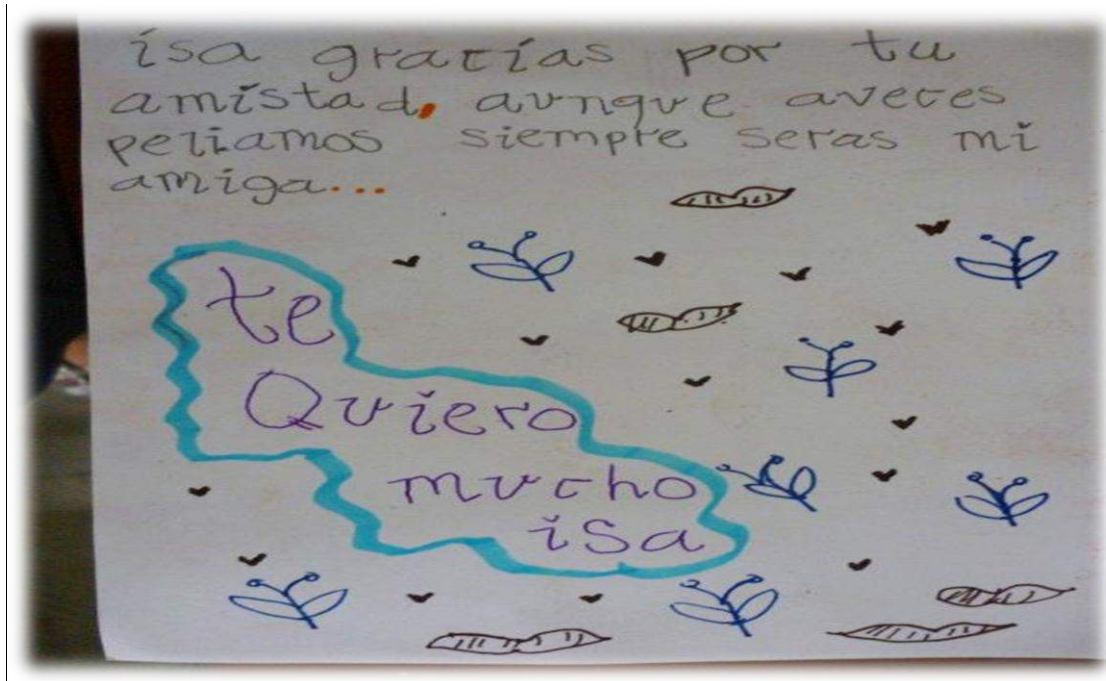 isa gracias por tu
amistad, aunque aveces
peliamos siempre seras mi
amiga...
te
Quiero
mucho
isa